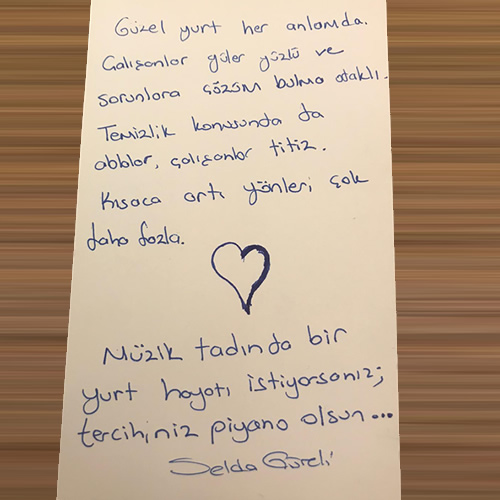 Güzel yurt her anlamda.
Çalışanlar güler yüzlü ve
sorunlara çözüm bulma odaklı.
Temizlik konusunda da
ablalar, çalışanlar titiz.
Kısaca artı yönleri çok
daha fazla.
Müzik tadında bir
yurt hayatı istiyorsanız;
tercihiniz piyano olsun...
Selda Güreli